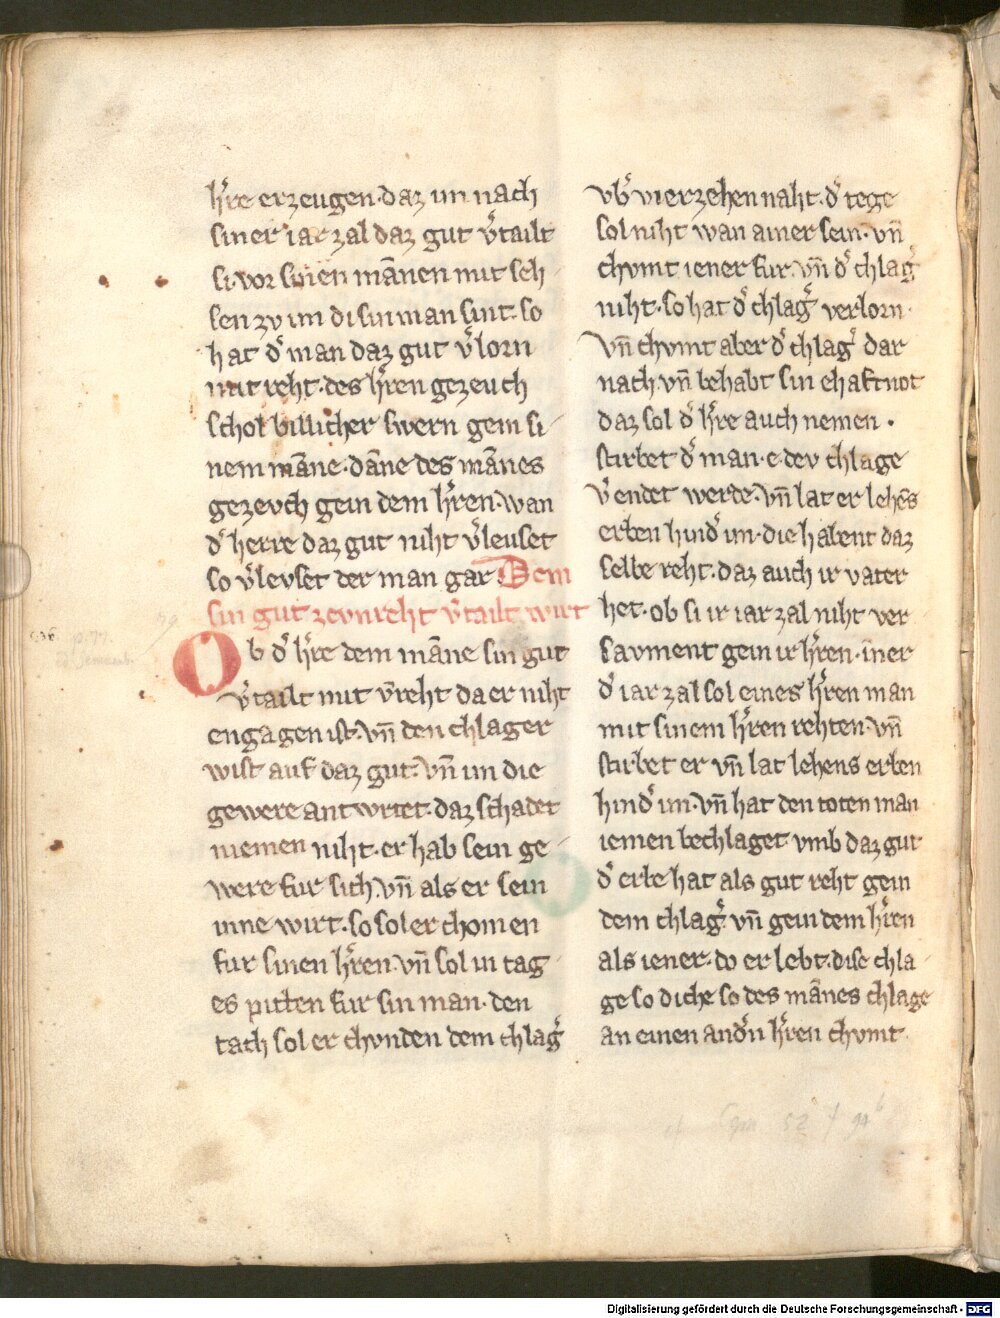 hͤre erzeugen·daz im nach
siner iar zal daz gut v̾tailt
si·vor sinen mānen mit seh
sen zv im di sin man sint·so
hat d̾ man daz gut v̾lorn
mit reht·des hͤren gezeuch
schol billicher swern gem si
nem māne·dāne des mānes
gezevch gein dem hͤren·wan
d̾ herre daz gut niht v̾leuset
so v̾levset der man gar Dem
sin gut ze vnreht v̾tailt wirt
Ob d̾ hͤre dem māne sin gut
v̾tailt mit v̄reht da er niht
engagen ist·vn̄ den chlager
wist auf daz gut·vn̄ im die
gewere antwrtet·daz schadet
niemen niht·er hab sein ge
were fur sich·vn̄ als er sein
inne wirt·so sol er chomen
fur sinen hͤren·vn̄ sol in tag
es pitten fur sin man·den
tach sol er chvnden dem chlag̾
vb̾ vierzehen naht·d̾ tege
sol niht wan ainer sein·vn̄
chvmt iener fur·vn̄ d̾ chlag̾
niht·so hat d̾ chlag̾ verlorn·
vn̄ chvmt aber d̾ chlag̾ dar
nach vn̄ behabt sin ehaftnot
daz sol d̾ hͤre auch nemen·
stirbet d̾ man·e·dev chlage
v̾endet werde·vn̄ lat er lehēs
erben hind̾ im·die habent daz
selbe reht·daz auch ir vater
het·ob si ir iar zal niht ver
savment gein ir hͤren·īner
d̾ iar zal sol eines hͤren man
mit sinem hͤren rehten·vn̄
stirbet er vn̄ lat lehens erben
hind̾ im·vn̄ hat den toten man
iemen bechlaget vmb daz gut
d̾ erbe hat als gut reht gein
dem chlag̾·vn̄ gein dem hͤren
als iener·do er lebt·dise chla
ge so diche so des mānes chlage
an einen and̾n hͤren chvmt·
cf Cgm 52 f 94b
Digitalisierung gefördert durch die Deutsche Forschungsgemeinschaft - DFG